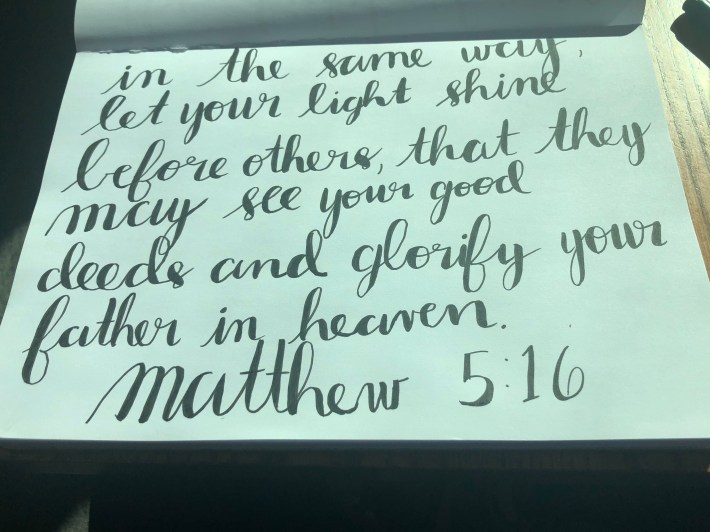 in the same way,
let your light shine
before others, that they
may see your good
deeds and glorify your
father in heaven.
Matthew 5:16